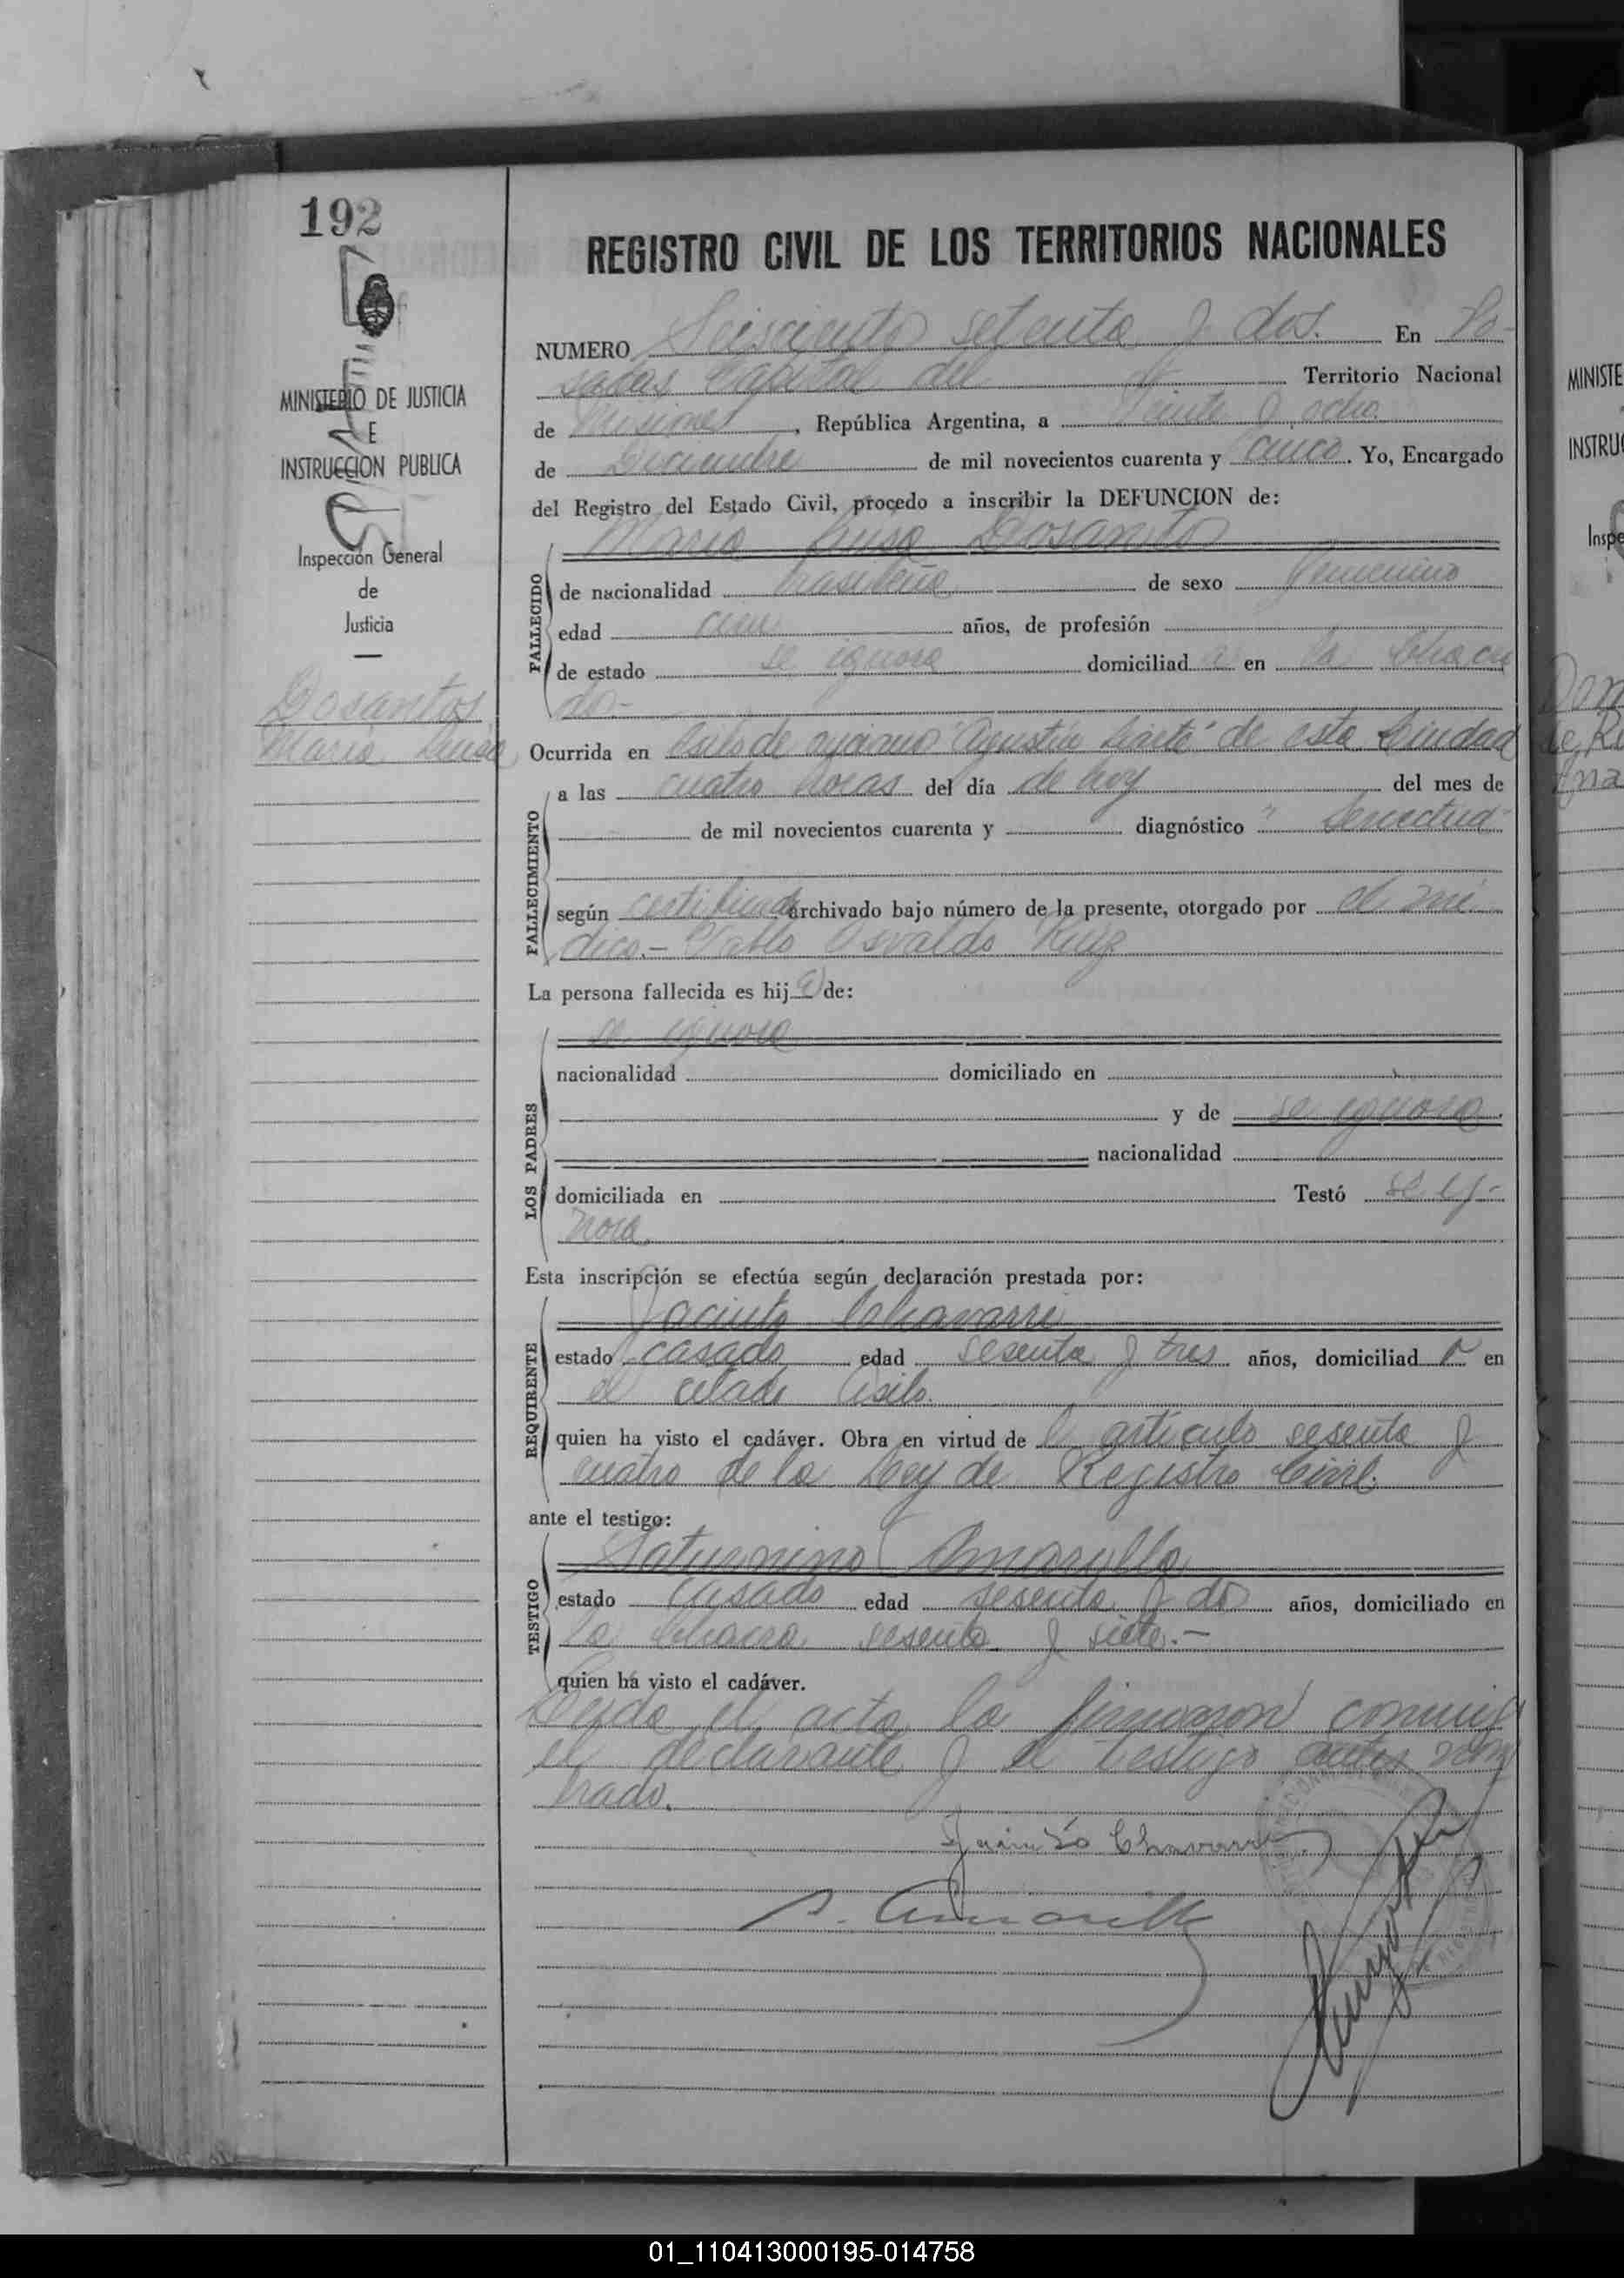 192
MINISTERIO DE JUSTICIA
E
INSTRUCCION PUBLICA
Inspección General
de
Justicia
Dosantos
María Luisa
REGISTRO CIVIL DE LOS TERRITORIOS NACIONALES
NUMERO Seiscientos setenta y dos. En Po-
sadas Capital del Territorio Nacional
de Misiones, República Argentina, a veinte y ocho
de Diciembre de mil novecientos cuarenta y cinco. Yo, Encargado
del Registro del Estado Civil, procedo a inscribir la DEFUNCION de:
María Luisa Dosantos
FALLECIDO
de nacionalidad brasileña de sexo femenino
edad cien años, de profesión
de estado se ignora domiciliada en la
Ocurrida en Asilo de anciano "Agustín" de esta Ciudad
FALLECIMIENTO
a las cuatro horas del día de hoy del mes de
de mil novecientos cuarenta y diagnóstico "Senectud"
según certificado archivado bajo número de la presente, otorgado por el mé
dico.- Pablo Osvaldo Ruiz
La persona fallecida es hija de:
se ignora
LOS PADRES
nacionalidad domiciliado en
y de se ignora.
nacionalidad
domiciliada en Testó se ig-
nora.
Esta inscripción se efectúa según declaración prestada por:
Jacinto Chavarri
REQUIRENTE
estado casado edad sesenta y tres años, domiciliado en
el citado Asilo.
quien ha visto el cadáver. Obra en virtud de l artículo sesenta y
cuatro de la Ley de Registro Civil.
ante el testigo:
Saturnino Amarilla
TESTIGO
estado casado edad sesenta y dos años, domiciliado en
la Chacra sesenta y siete.-
quien ha visto el cadáver.
Leída el acta la firmaron conmigo
el declarante y el testigo antes nom
brado.
Jacinto Chavarri
S. Amarilla
MINISTE
INSTRU
Inspe
01_110413000195-014758